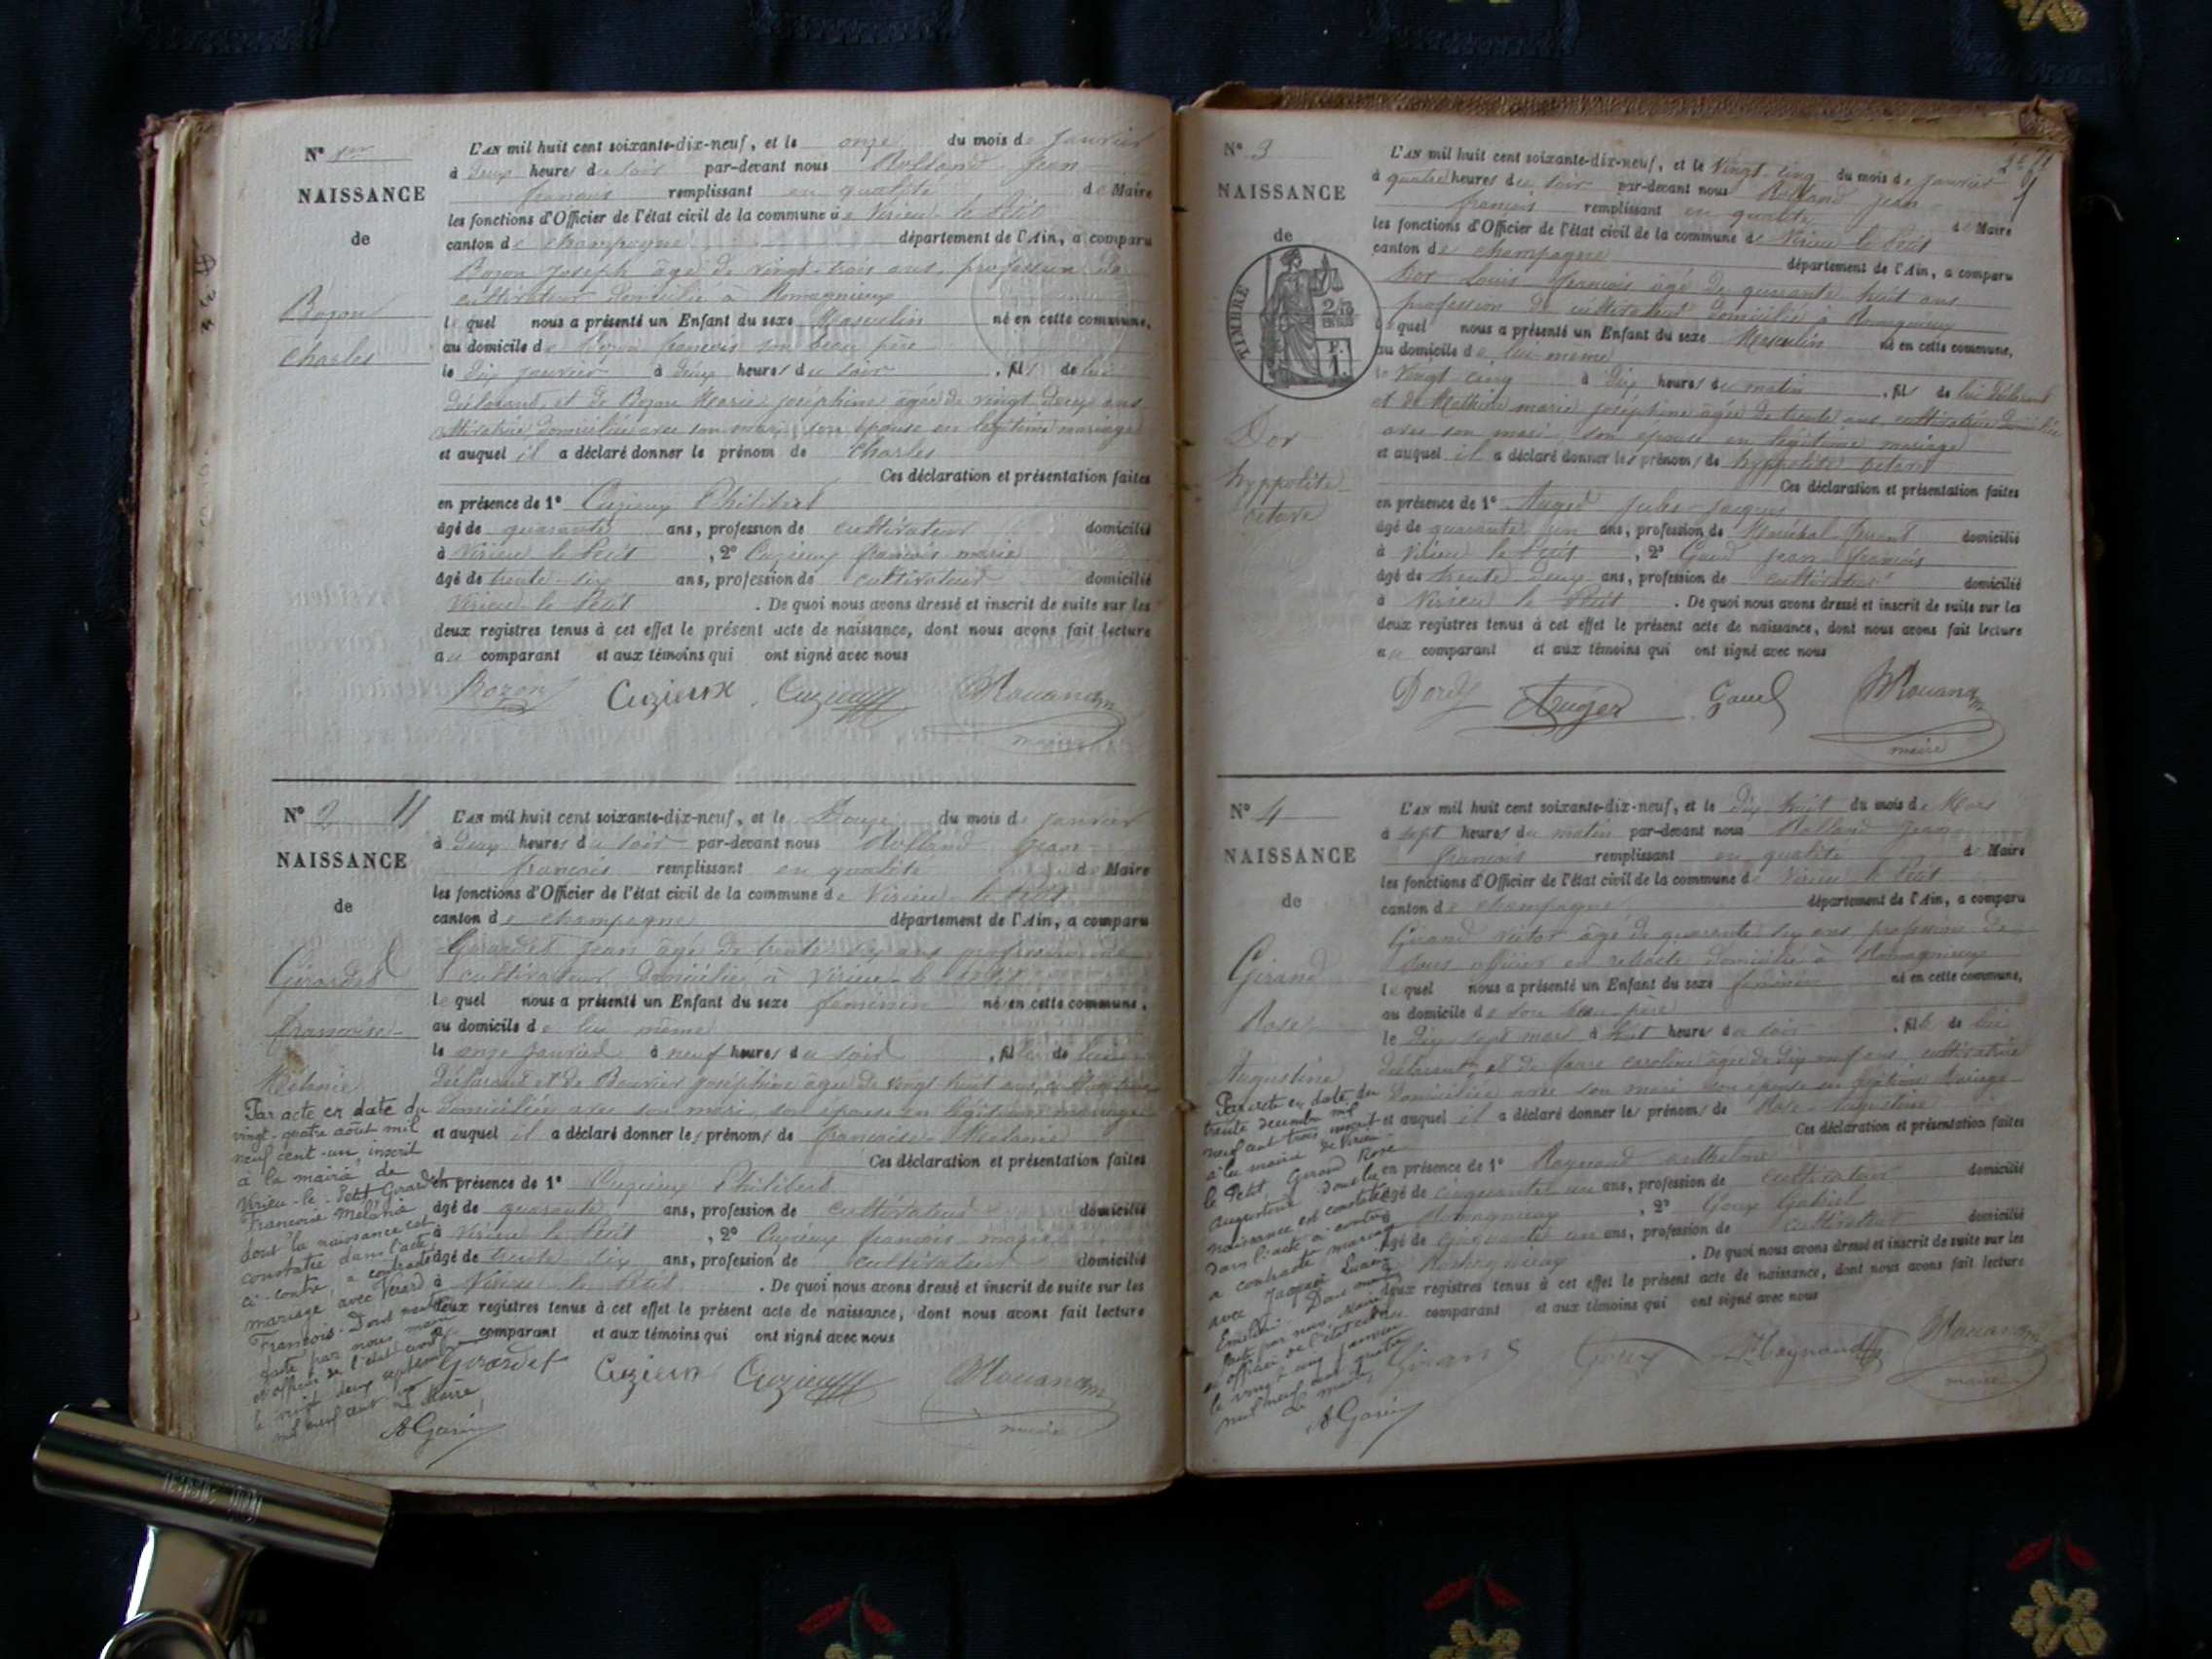 N° 1er
NAISSANCE
de
Bozon
Charles
L'AN mil huit cent soixante-dix-neuf, et le onze du mois de Janvier
à deux heures du soir par-devant nous Rolland Jean
françois remplissant en qualité de Maire
les fonctions d'Officier de l'état civil de la commune de Virieu le Petit
canton de champagne département de l'Ain, a comparu
Bozon Joseph âgé de vingt-trois ans, profession de
cultivateur domicilié à Romagnieux
lequel nous a présenté un Enfant du sexe Masculin né en cette commune,
au domicile de Bozon françois son beau père
le dix janvier à deux heures du soir, fils de lui
déclarant, et de Bozon Marie joséphine âgée de vingt deux ans
cultivatrice, domiciliée avec son mari, son épouse en légitime mariage
et auquel il a déclaré donner le prénom de Charles
Ces déclaration et présentation faites
en présence de 1° Cuzieux Philibert
âgé de quarante ans, profession de cultivateur domicilié
à Virieu le Petit, 2° Cuzieux françois marie
âgé de trente-six ans, profession de cultivateur domicilié
Virieu le Petit. De quoi nous avons dressé et inscrit de suite sur les
deux registres tenus à cet effet le présent acte de naissance, dont nous avons fait lecture
au comparant et aux témoins qui ont signé avec nous
Bozon Cuzieux Cuzieux
maire
N° 2
NAISSANCE
de
Girardet
françoise
Mélanie
L'AN mil huit cent soixante-dix-neuf, et le Douze du mois de janvier
à deux heures du soir par-devant nous Rolland Jean
françois remplissant en qualité de Maire
les fonctions d'Officier de l'état civil de la commune de Virieu le Petit
canton de champagne département de l'Ain, a comparu
Girardet Jean âgé de trente six ans profession de
cultivateur domicilié à Virieu le Petit
lequel nous a présenté un Enfant du sexe féminin né en cette commune,
au domicile de lui même
le onze janvier à neuf heures du soir, fille de lui
déclarant et de Bouvier joséphine âgée de vingt huit ans, cultivatrice
domiciliée avec son mari, son épouse en légitime mariage
et auquel il a déclaré donner les prénoms de françoise Mélanie
Ces déclaration et présentation faites
en présence de 1° Cuzieux Philibert
âgé de quarante ans, profession de cultivateur domicilié
à Virieu le Petit, 2° Cuzieux françois marie
âgé de trente six ans, profession de cultivateur domicilié
à Virieu le Petit. De quoi nous avons dressé et inscrit de suite sur les
deux registres tenus à cet effet le présent acte de naissance, dont nous avons fait lecture
au comparant et aux témoins qui ont signé avec nous
Girardet Cuzieux Cuzieux
maire
Par acte en date du
vingt-quatre août mil
neuf cent-un, inscrit
à la mairie de
Virieu-le-Petit Girardet
Françoise Mélanie
dont la naissance est
constatée dans l'acte
ci-contre, a contracté
mariage avec Verard
François. Dont mention
faite par nous maire
et officier de l'état civil
le vingt deux septembre
mil neuf cent un
Le Maire
A Garin
N° 3
NAISSANCE
de
TIMBRE
Dor
hyppolite
octave
L'AN mil huit cent soixante-dix-neuf, et le Vingt-cinq du mois de janvier
à quatre heures du soir par-devant nous Rolland Jean
françois remplissant en qualité de Maire
les fonctions d'Officier de l'état civil de la commune de Virieu le Petit
canton de champagne département de l'Ain, a comparu
Dor Louis françois âgé de quarante huit ans
profession de cultivateur domicilié à Romagnieux
lequel nous a présenté un Enfant du sexe Masculin né en cette commune,
au domicile de lui même
le Vingt cinq à dix heures du matin, fils de lui déclarant
et de Mathieu marie joséphine âgée de trente ans, cultivatrice domiciliée
avec son mari, son épouse en légitime mariage
et auquel il a déclaré donner les prénoms de hyppolite octave
Ces déclaration et présentation faites
en présence de 1° Auger Jules Jacques
âgé de quarante un ans, profession de Maréchal ferrant domicilié
à Virieu le Petit, 2° Gaud jean françois
âgé de trente deux ans, profession de cultivateur domicilié
à Virieu le Petit. De quoi nous avons dressé et inscrit de suite sur les
deux registres tenus à cet effet le présent acte de naissance, dont nous avons fait lecture
au comparant et aux témoins qui ont signé avec nous
Auger
maire
N° 4
NAISSANCE
de
Girand
Rose
Augustine
L'AN mil huit cent soixante-dix-neuf, et le Dix huit du mois de Mars
à sept heures du matin par-devant nous Rolland Jean
françois remplissant en qualité de Maire
les fonctions d'Officier de l'état civil de la commune de Virieu le Petit
canton de champagne département de l'Ain, a comparu
Girand victor âgé de quarante six ans, profession de
sous officier en retraite domicilié à Romagnieux
lequel nous a présenté un Enfant du sexe féminin né en cette commune,
au domicile de son beau-père
le Dix sept mars à huit heures du soir, fille de lui
déclarant, et de favre caroline âgée de dix neuf ans, cultivatrice
domiciliée avec son mari son épouse en légitime mariage
et auquel il a déclaré donner les prénoms de Rose Augustine
Ces déclaration et présentation faites
en présence de 1° Raynaud anthelme
âgé de cinquante un ans, profession de cultivateur domicilié
à Romagnieux, 2° Goux Gabriel
âgé de cinquante un ans, profession de cultivateur domicilié
Romagnieux. De quoi nous avons dressé et inscrit de suite sur les
deux registres tenus à cet effet le présent acte de naissance, dont nous avons fait lecture
comparant et aux témoins qui ont signé avec nous
Goux Raynaud
maire
Par acte en date du
trente décembre mil
neuf cent trois inscrit
à la mairie de Virieu
le Petit Girand Rose
Augustine dont la
naissance est constatée
dans l'acte ci-contre
a contracté mariage
avec
Dont mention
faite par nous, Maire
et officier de l'état civil
le vingt cinq janvier
mil neuf cent quatre
Le maire
A Garin